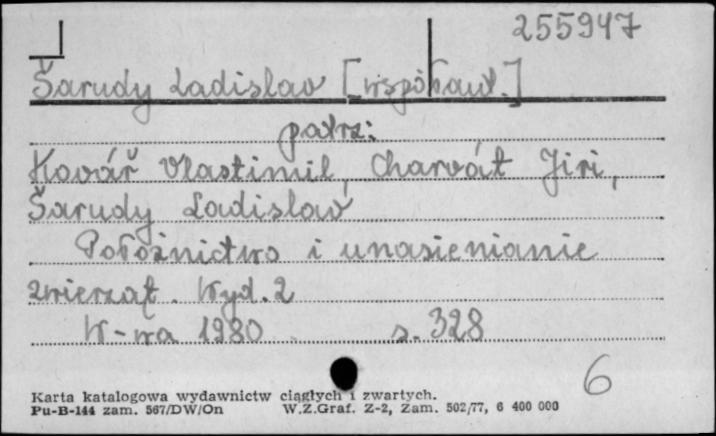 255947
Šarudy Ladislav [współaut.]
patrz:
Kovář Vlastimil, Charvát Jiri,
Šarudy Ladislav
Położnictwo i unasienianie
zwierząt. Wyd. 2
W-wa 1980 s. 328
6
Karta katalogowa wydawnictw ciągłych i zwartych.
Pu-B-144 zam. 567/DW/On W.Z.Graf. Z-2, Zam. 502/77, 6 400 000